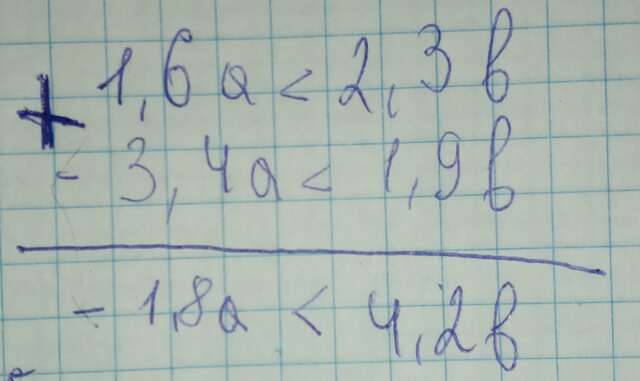 + 1,6а < 2,3в
- 3,4а < 1,9в
- 1,8а < 4,2в